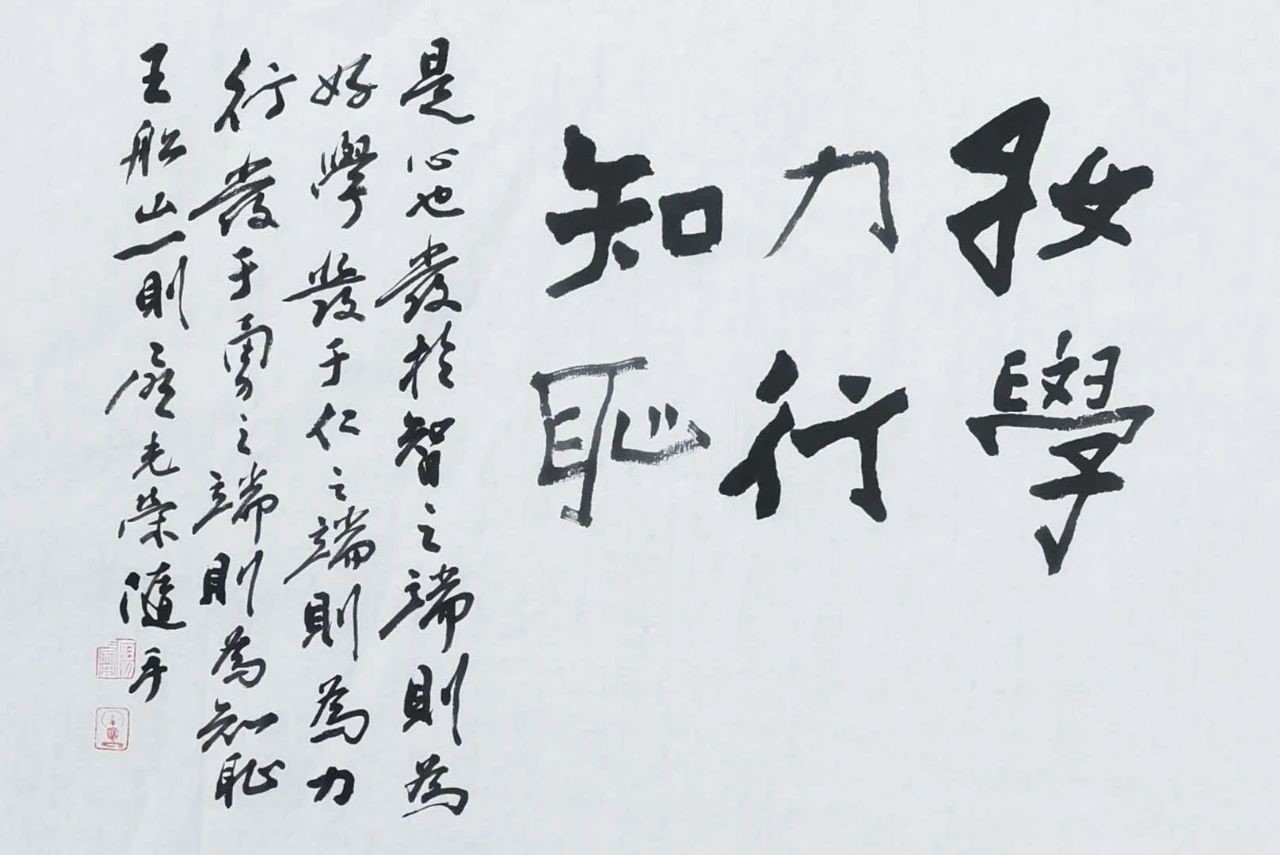 好學
力行
知恥
是心也發於智之端則為
好學發于仁之端則為力
行發于勇之端則為知恥
王船山一則 老榮隨手